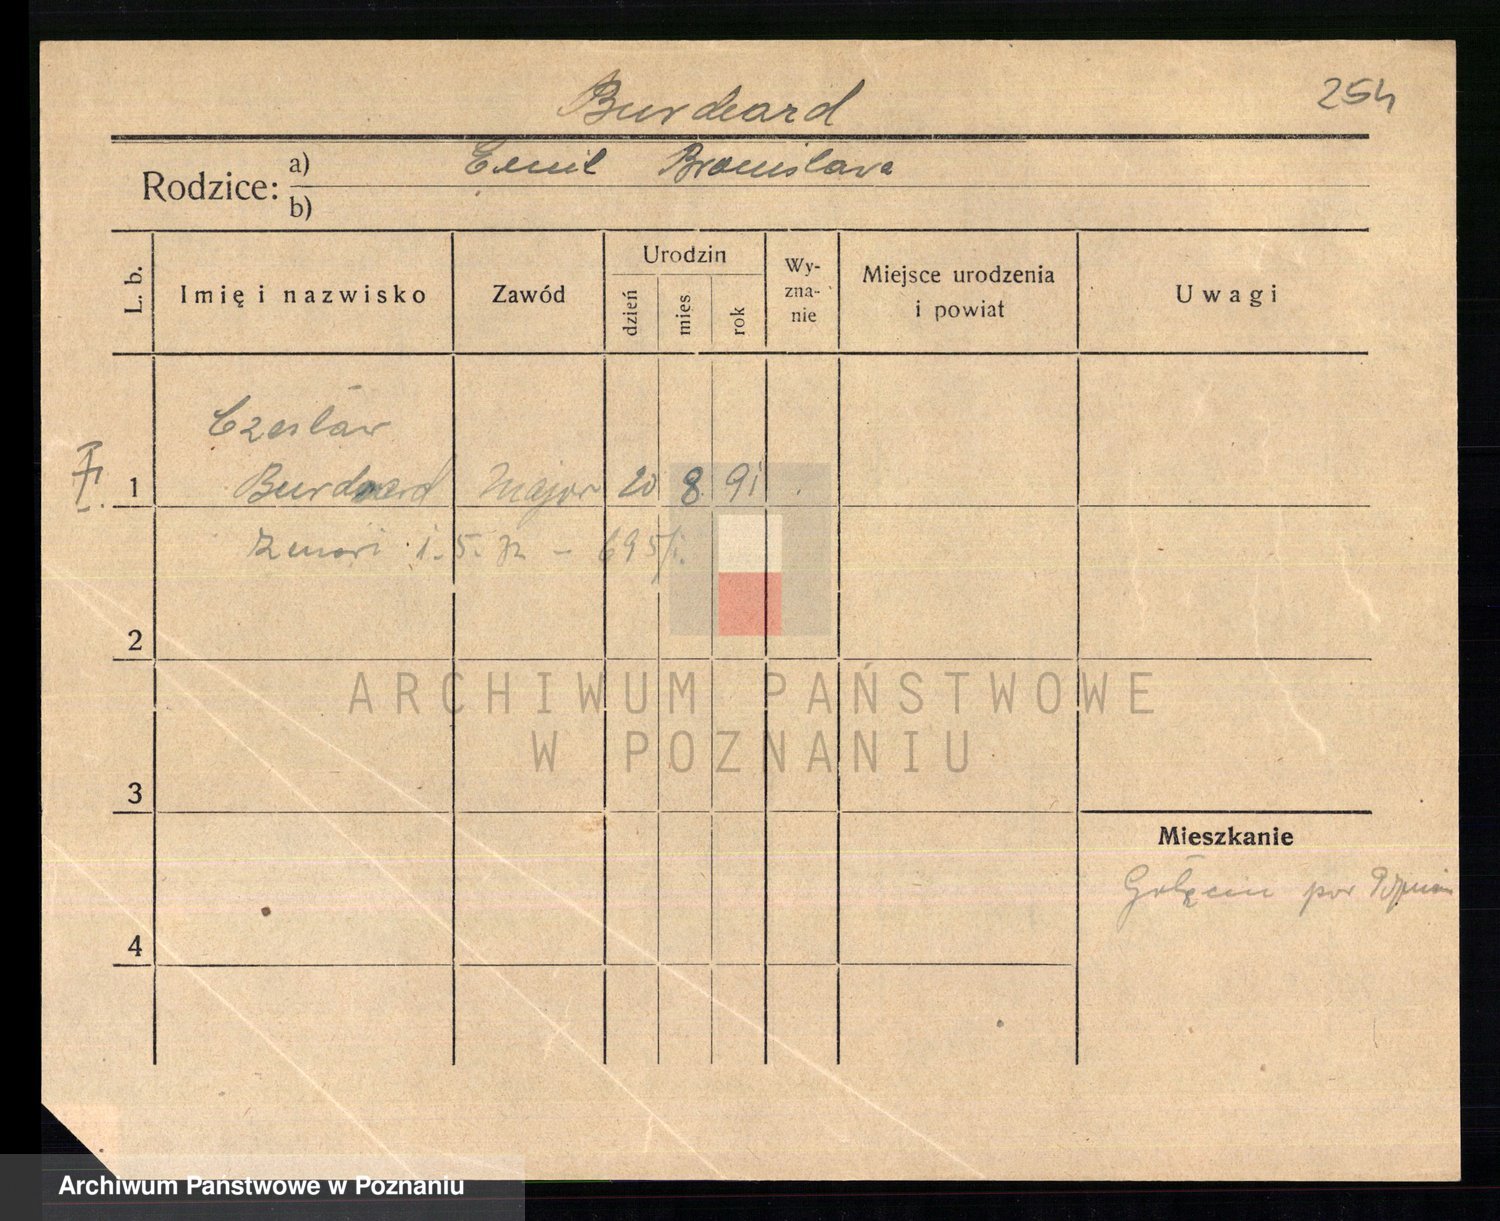 Burdeard
254
Rodzice: a) Emil Bronislava
b)
L. b.
Imię i nazwisko
Zawód
Urodzin
dzień
mies
rok
Wy-
zna-
nie
Miejsce urodzenia
i powiat
Uwagi
Czeslaw
1 Burdeard Major 20 8 91
1. 5. 32 - 695
2
3
4
Mieszkanie
Golęcin
ARCHIWUM PAŃSTWOWE
W POZNANIU
Archiwum Państwowe w Poznaniu